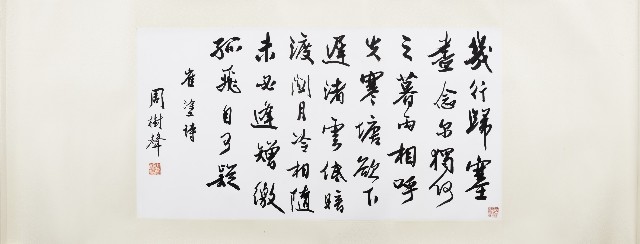 幾行歸塞
盡念尔獨何
之暮雨相呼
失寒塘欲下
遲渚雲低暗
渡關月冷相隨
未必逢矰繳
孤飛自可疑
崔塗詩
周樹聲